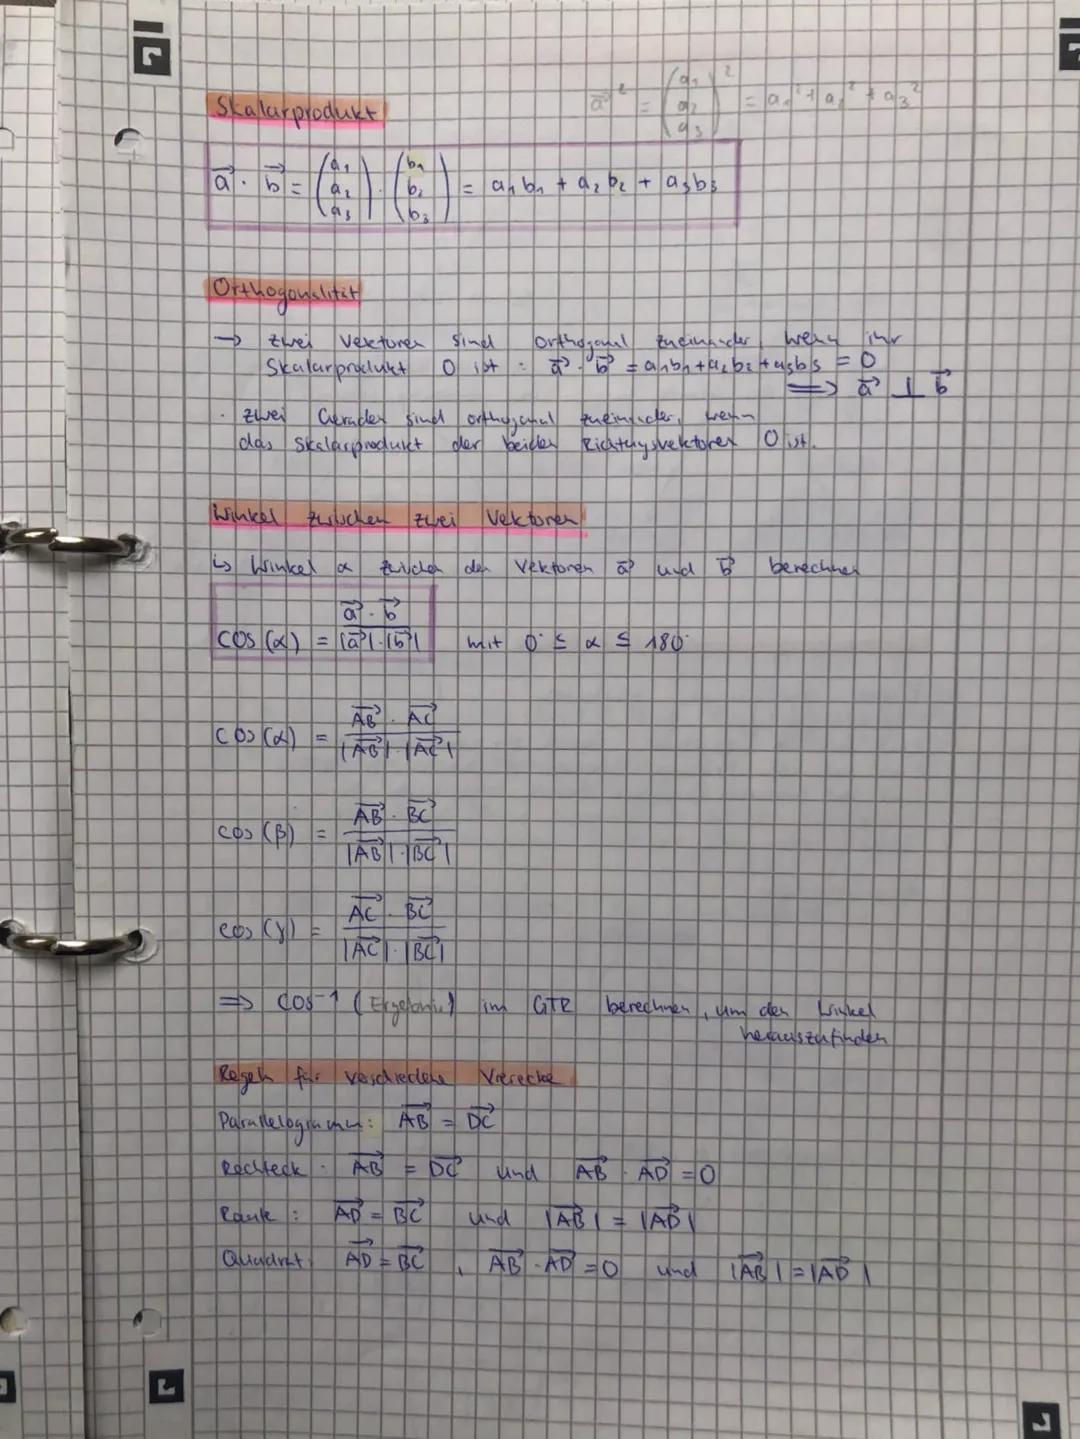 Skalarprodukt
a⃗² = (a₁ a₂ a₃)² = a₁² + a₂² + a₃²
a⃗ · b⃗ = (a₁ a₂ a₃) · (b₁ b₂ b₃) = a₁b₁ + a₂b₂ + a₃b₃
Orthogonalität
→ zwei Vektoren sind orthogonal zueinander, wenn ihr
Skalarprodukt 0 ist : a⃗ · b⃗ = a₁b₁ + a₂b₂ + a₃b₃ = 0
⟹ a⃗ ⊥ b⃗
· zwei Geraden sind orthogonal zueinander, wenn
das Skalarprodukt der beiden Richtungsvektoren 0 ist.
Winkel zwischen zwei Vektoren
↳ Winkel α zwischen den Vektoren a⃗ und b⃗ berechnen
cos(α) = (a⃗ · b⃗) / (|a⃗| · |b⃗|) mit 0° ≤ α ≤ 180°
cos(α) = (AB⃗ · AC⃗) / (|AB⃗| · |AC⃗|)
cos(β) = (AB⃗ · BC⃗) / (|AB⃗| · |BC⃗|)
cos(γ) = (AC⃗ · BC⃗) / (|AC⃗| · |BC⃗|)
⟹ cos⁻¹ (Ergebnis) im GTR berechnen, um den Winkel
herauszufinden
Regeln für verschiedene Vierecke
Parallelogramm: AB⃗ = DC⃗
Rechteck: AB⃗ = DC⃗ und AB⃗ · AD⃗ = 0
Raute: AD⃗ = BC⃗ und |AB⃗| = |AD⃗|
Quadrat: AD⃗ = BC⃗, AB⃗ · AD⃗ = 0 und |AB⃗| = |AD⃗|